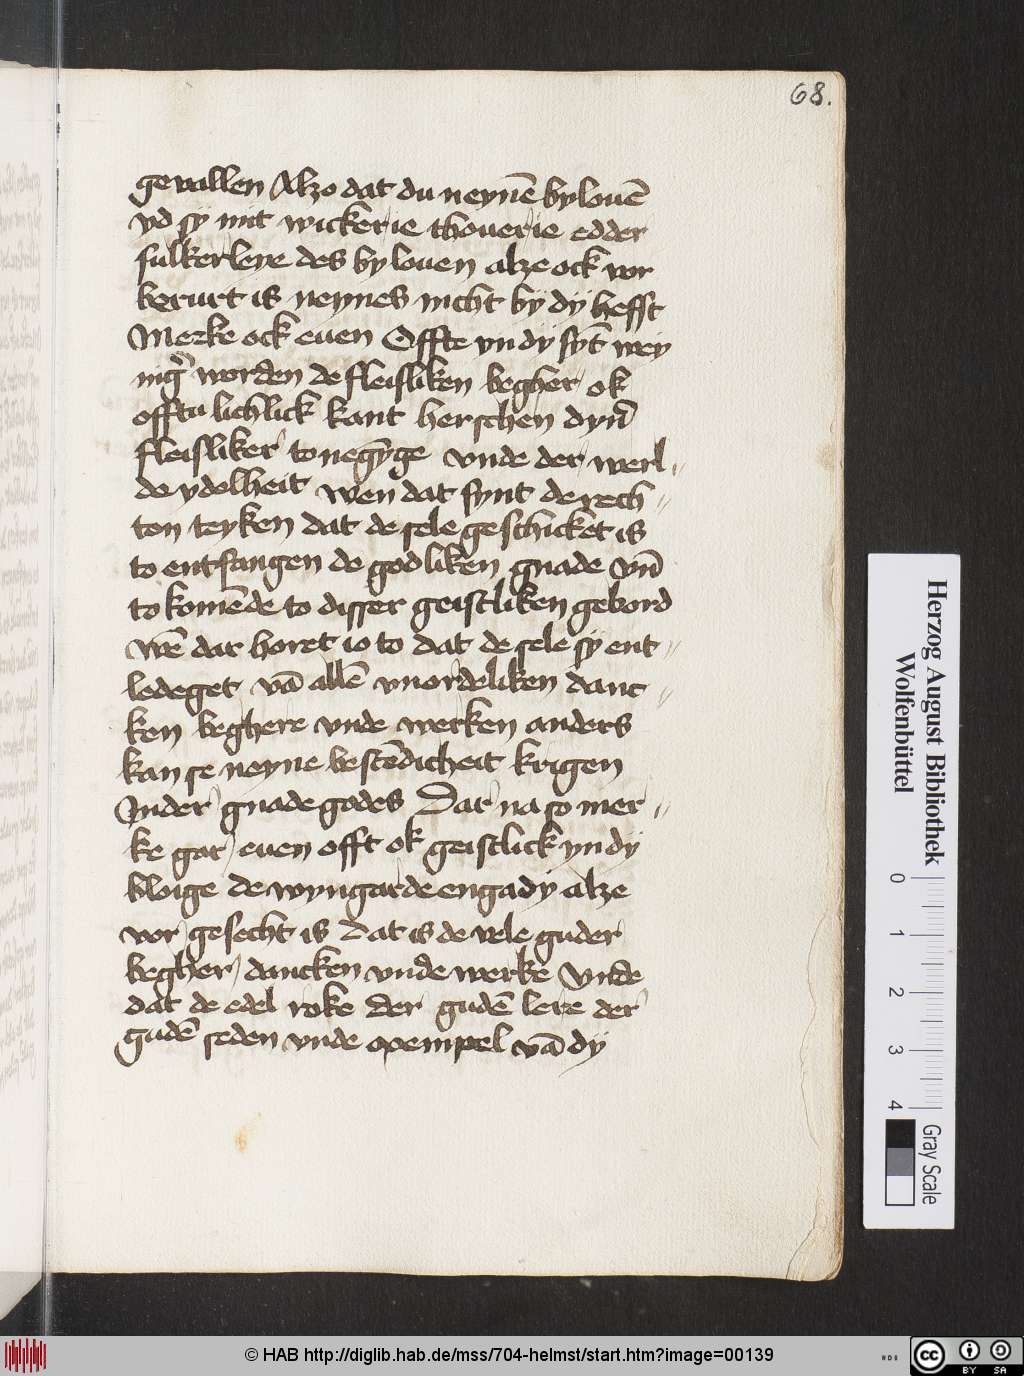 68.
gevallen Alzo dat du neynē bylouē
yd sy mit wickerie thouerie edder
sulkerleye des bylouen alze ock vor
berurt is neynes nicht by dy hefft
Merke ock euen Offte yn dy syt wey
nig worden de fleisliken begher ok
offtu lichlick kant herschen dyn
fleisliker to negyge vnde der werl
de ydelheit wen dat synt de rech
ten teyken dat de sele geschicket is
to entfangen de godliken gnade vn̄
to komēde to disser geistliken gebord
wē dar horet io to dat de sele sy ent
ledeget vā allē vnordeliken danc
ken beghere vnde werken anders
kan se neyne bestēdicheit krigen
Inder gnade godes Dar na so mer
ke gar euen offt ok geistlick yn dy
bloige de wyngarde engady alze
vor gesecht is Dat is de vele guder
begher dancken vnde werke Vnde
dat de edel roke der gudē lere der
gudē seden vnde exempel vā dy
Herzog August Bibliothek
Wolfenbüttel
0 1 2 3 4
Gray Scale
© HAB http://diglib.hab.de/mss/704-helmst/start.htm?image=00139
cc BY SA